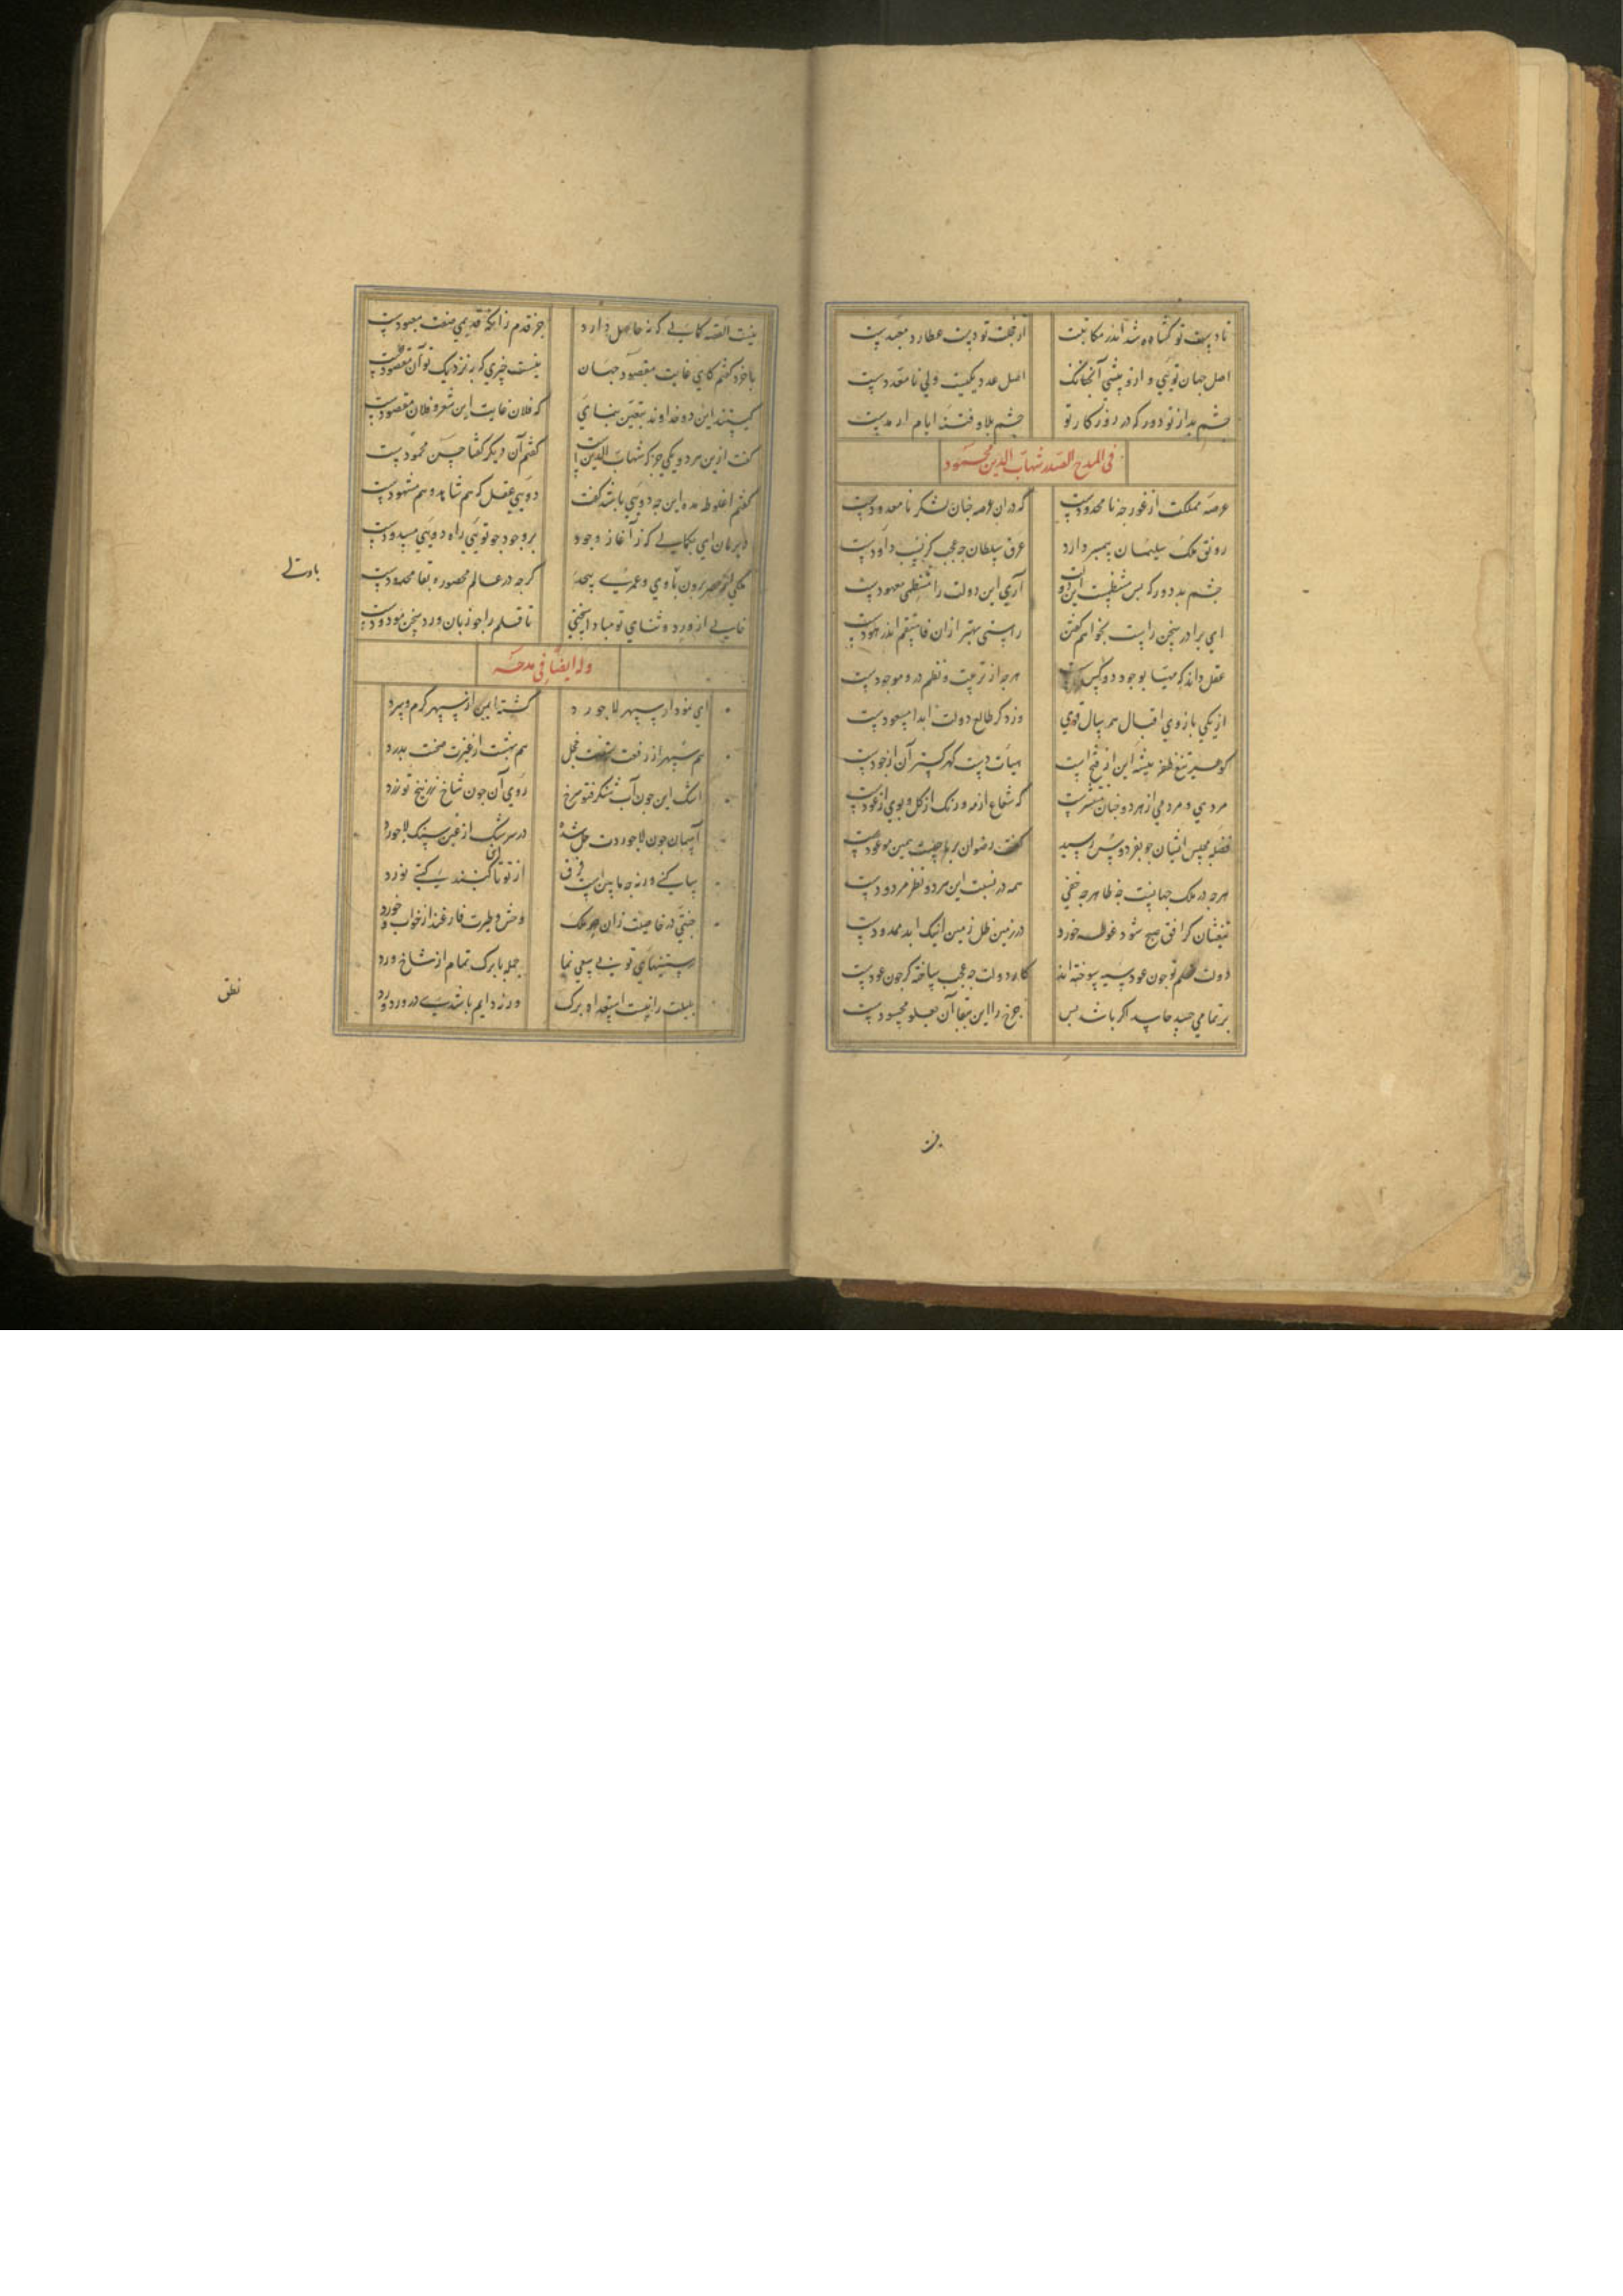 تا دست تو گشاده شد اندر مکاتبت از خجلت تو دست عطارد مقید است
اصل جهان تویی و ازو پیشی آنچنانک اصل عدد یکیست ولی نا معدد است
چشم بد از تو دور که در روزگار تو چشم بلا و فتنه ایام ارمد است
فی المدح الصدر شهاب الدین محمود
عرصه مملکت از غور چه نا محدودست که در ان عرصه چنان لشکر نا معدودست
رونق ملک سلیمان پیمبر دارد عرق سلطان چه عجب کز نسب داودست
چشم بد دور که بس منتظمست این دولت آری این دولت را منتظمی معهودست
ای برادر سخن راست بخواهم گفتن راستی بهتر ازان فاستقم اندر هودست
عقل داند که مهیا بوجود دو کس است هرچه از تربیت و نظم درو موجودست
از یکی بازوی اقبال همه سال قوی وز دگر طالع دولت ابدا مسعودست
کوهسر تیغ ظفر پیشه این از فتح است هیات دست گهر گستر آن از جودست
مردی و مردمی از هر دو چنان منتشرست که شعاع از مه و رنگ از گل و بوی از عودست
قصه مجلس ایشان چو بفردوس رسید گفت رضوان بر ما چیست همین موعودست
هرچه در ملک جهانست چه ظاهر چه خفی همه در نسبت این هر دو نظر مردودست
تیغشان گر افق صبح شود غوطه خورد در زمین ظل زمین اینک ابد ممدودست
دولت خصم تو چون عود سیه سوخته اند گاه دولت چه عجب ساخته گر چون عودست
بر تمامی حسد حاسد اگر باشد بس چرخ را این بقا آن بعلو محسودست
نیست القصه کمالی که نه حاصل دارد جز قدم زانکه قدیمی صفت معبودست
با خرد گفتم کای غایت مقصود جهان نیست چیزی که به نزدیک تو آن مفقودست
کیستند این دو خداوند بتعیین بنمای که فلان غایت این شعر و فلان مقصودست
گفت ازین هر دو یکی جز که شهاب الدین است گفتم آن دیگر گفتا حسن محمودست
گفتم اغلوطه مده این چه دویی باشد گفت دویی عقل که هم شاهد و هم مشهودست
دیر مان ای بکمالی که ز آغاز وجود بر وجود چو تویی راه دویی مسدودست
گرچه در عالم محصور بقا محدودست
خالی از ورد و ثنای تو مباد ایچ سخن تا قلم را چو زبان ورد سخن مودودست
وله ایضا فی مدحه
ای نمودار سپهر لاجورد گشته ایمن از سپهر گرم و سرد
هم سپهر از رفعت سقفت خجل هم بهشت از غیرت صحنت بدرد
اشک این چون آب شنگرفتو سرخ روی آن چون شاخ زرنیخ تو زرد
آسمان چون لاجوردت حل شده در سرشک از غبن سنگ لاجورد
ساکنی ورنه چه ما بین است فرق از تو تا این گنبد گیتی نورد
جنتی در خاصیت زان چون ملک وحش و طیرت فارغند از خواب و خورد
رستنیهای تو بی سعی نما جمله با برگ تمام از شاخ ورد
بلبلت را نیست استعداد برگ ورنه دایم باشدی در ورد ورد
نطق